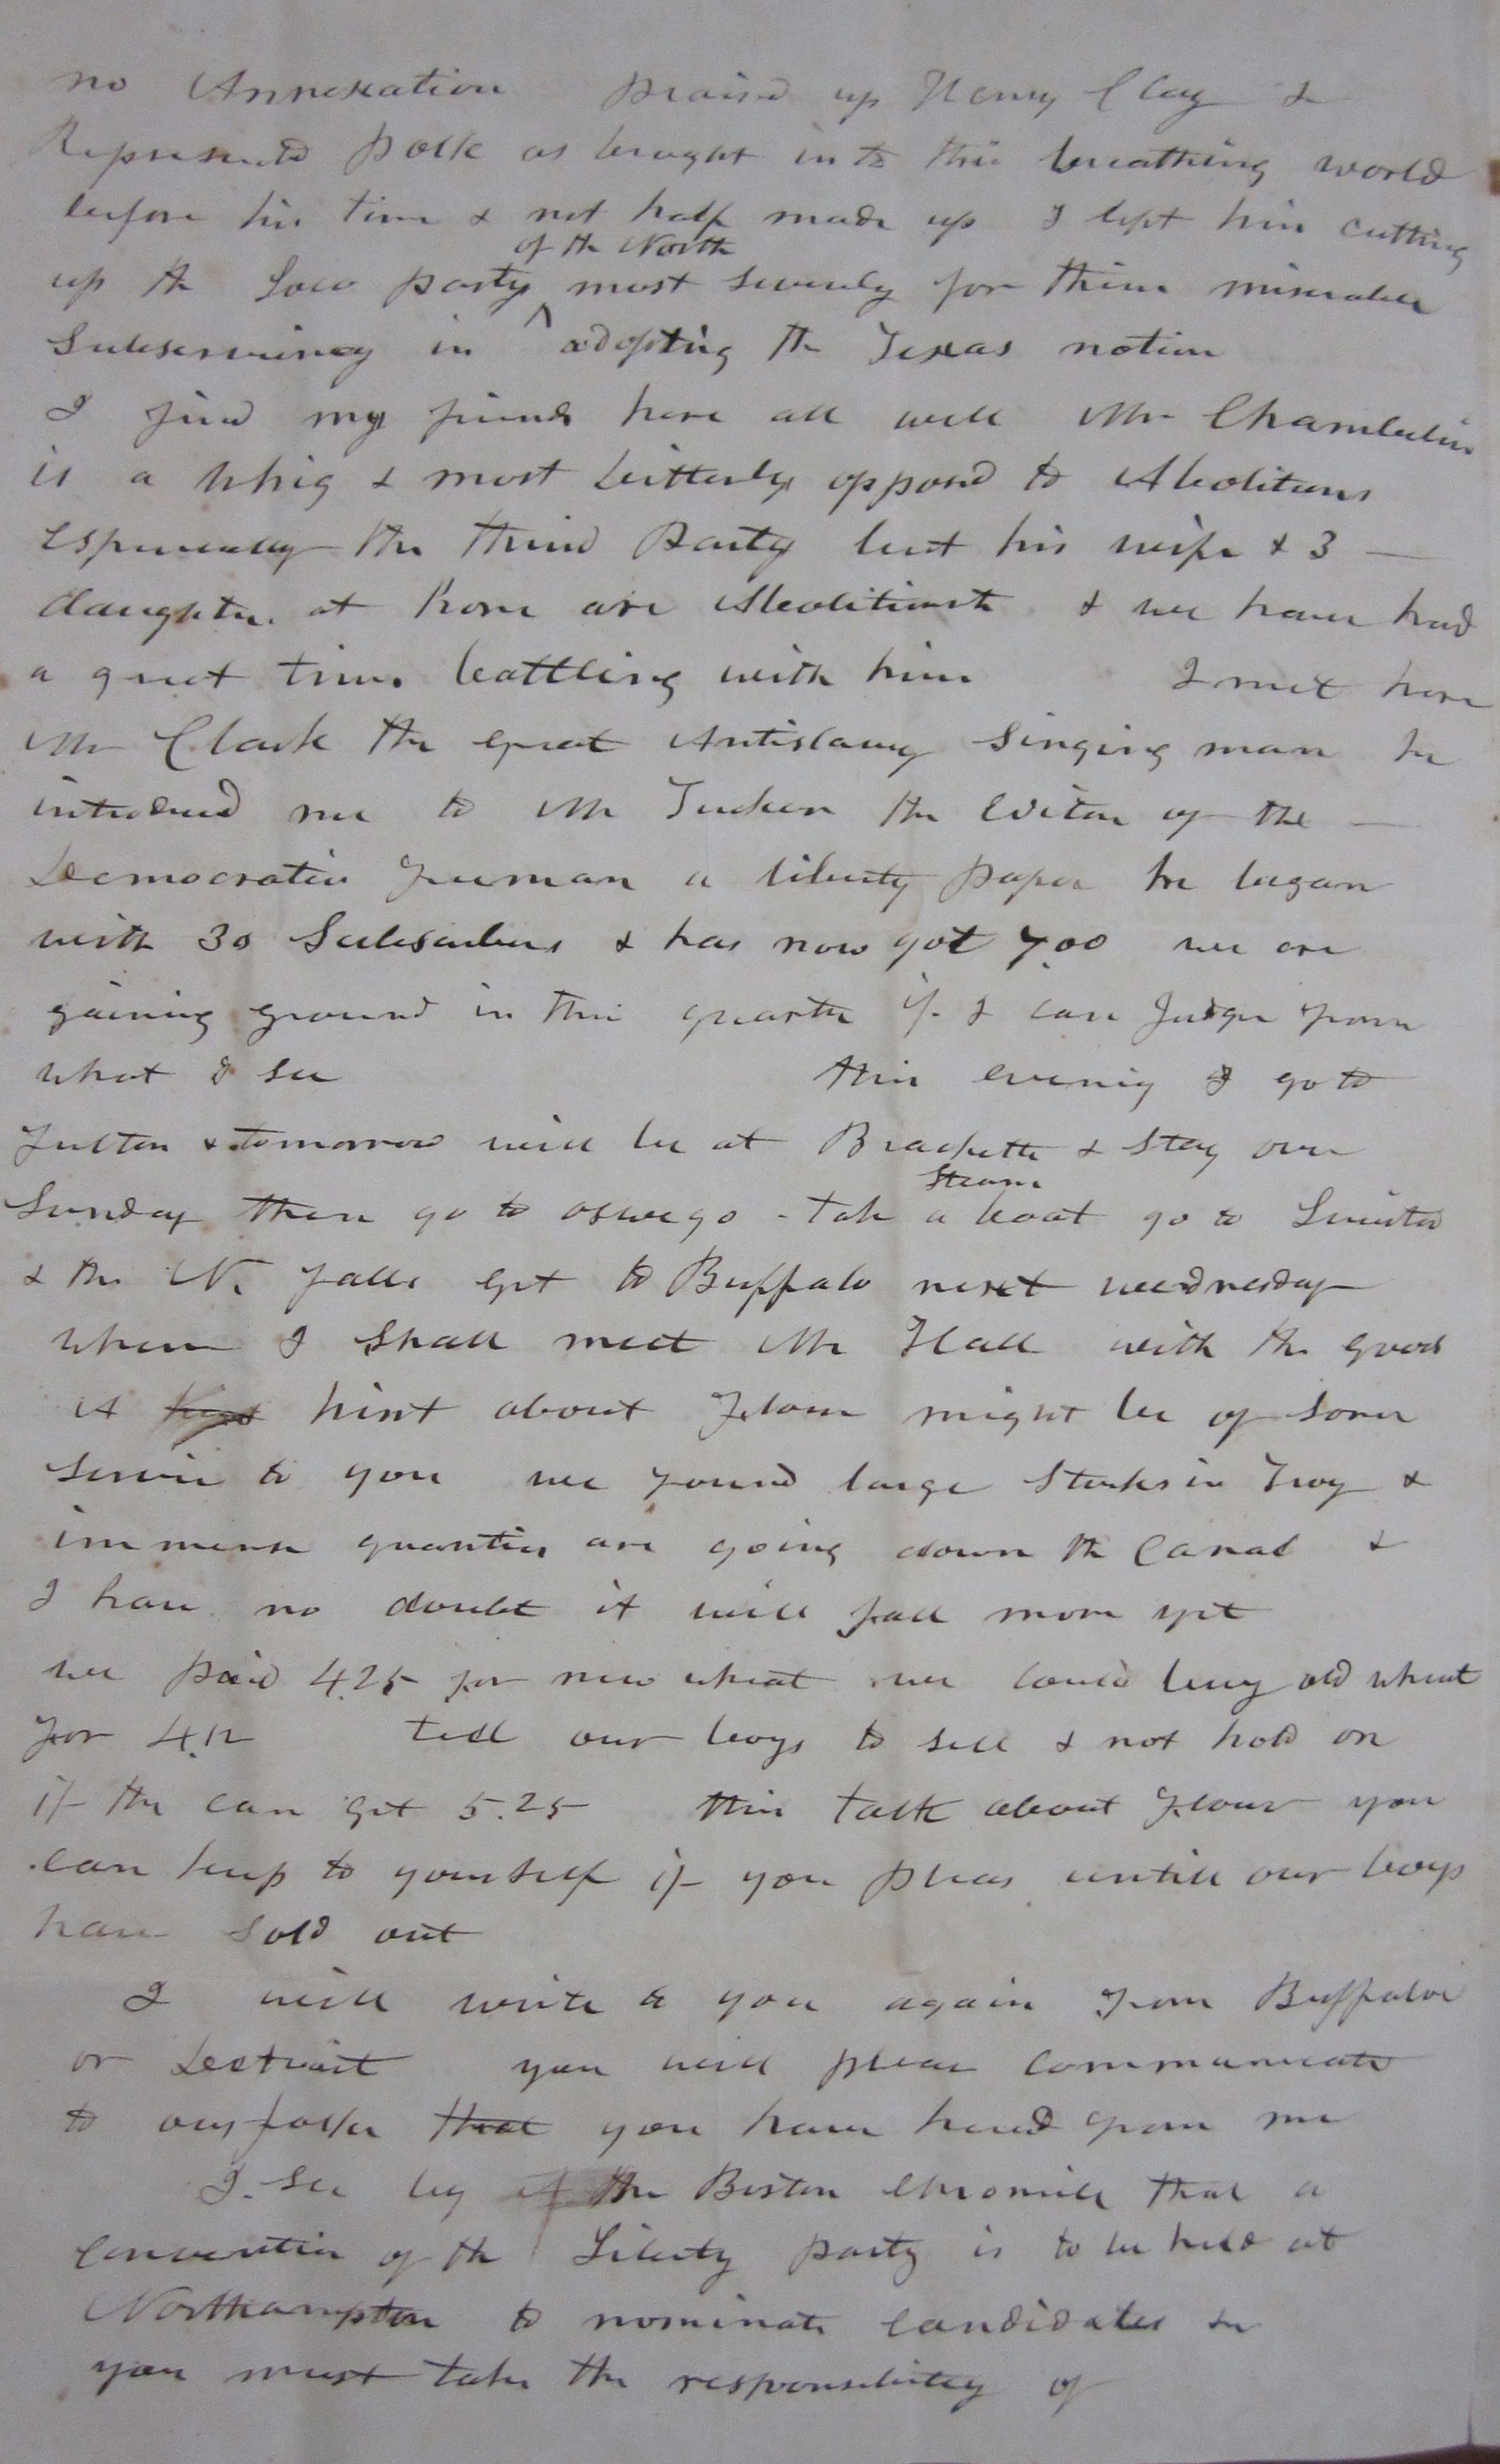 no Annexation praised up Henry Clay &
Represented Polk as brought into this breathing world
before his time & not half made up I left him cutting
of the North
up the Loco party most severely for their miserable
Subserviency in adopting the Texas notion
I find my friends here all well Mr Chamberlin
is a Whig & most bitterly opposed to Abolitions
especially the third Party but his wife & 3 —
daughters at home are Abolitionists & we have had
a great time battling with him I met here
Mr Clark the great Antislavery Singing man he
introduced me to Mr Tucker the Editor of the —
Democratic Freeman a liberty paper he began
with 30 Subscribers & has now got 700 we are
gaining ground in this quarter if I can Judge from
what I see this evening I go to
Fulton & tomorrow will be at Bracketts & Stay over
Steam
Sunday then go to oswego - take a boat go to Lewiston
& the N. falls get to Buffalo next wednesday
where I Shall meet Mr Hall with the goods
A hint about Flour might be of some
Service to you we found large Stocks in Troy &
immense quantities are going down the Canal &
I have no doubt it will fall more yet
we paid 4.25 for new wheat we could buy old wheat
for 4.12 tell our boys to sell & not hold on
if the can get 5.25 this talk about Flour you
can keep to yourself if you pleas untill our boys
have Sold out
I will write to you again from Buffaloe
or Deetroit you will please communicate
to our folks that you have heard from me
I See by the Boston Chronicle that a
Convention of the Liberty party is to be held at
Northampton to nominate Candidates &c
you must take the responsibility of